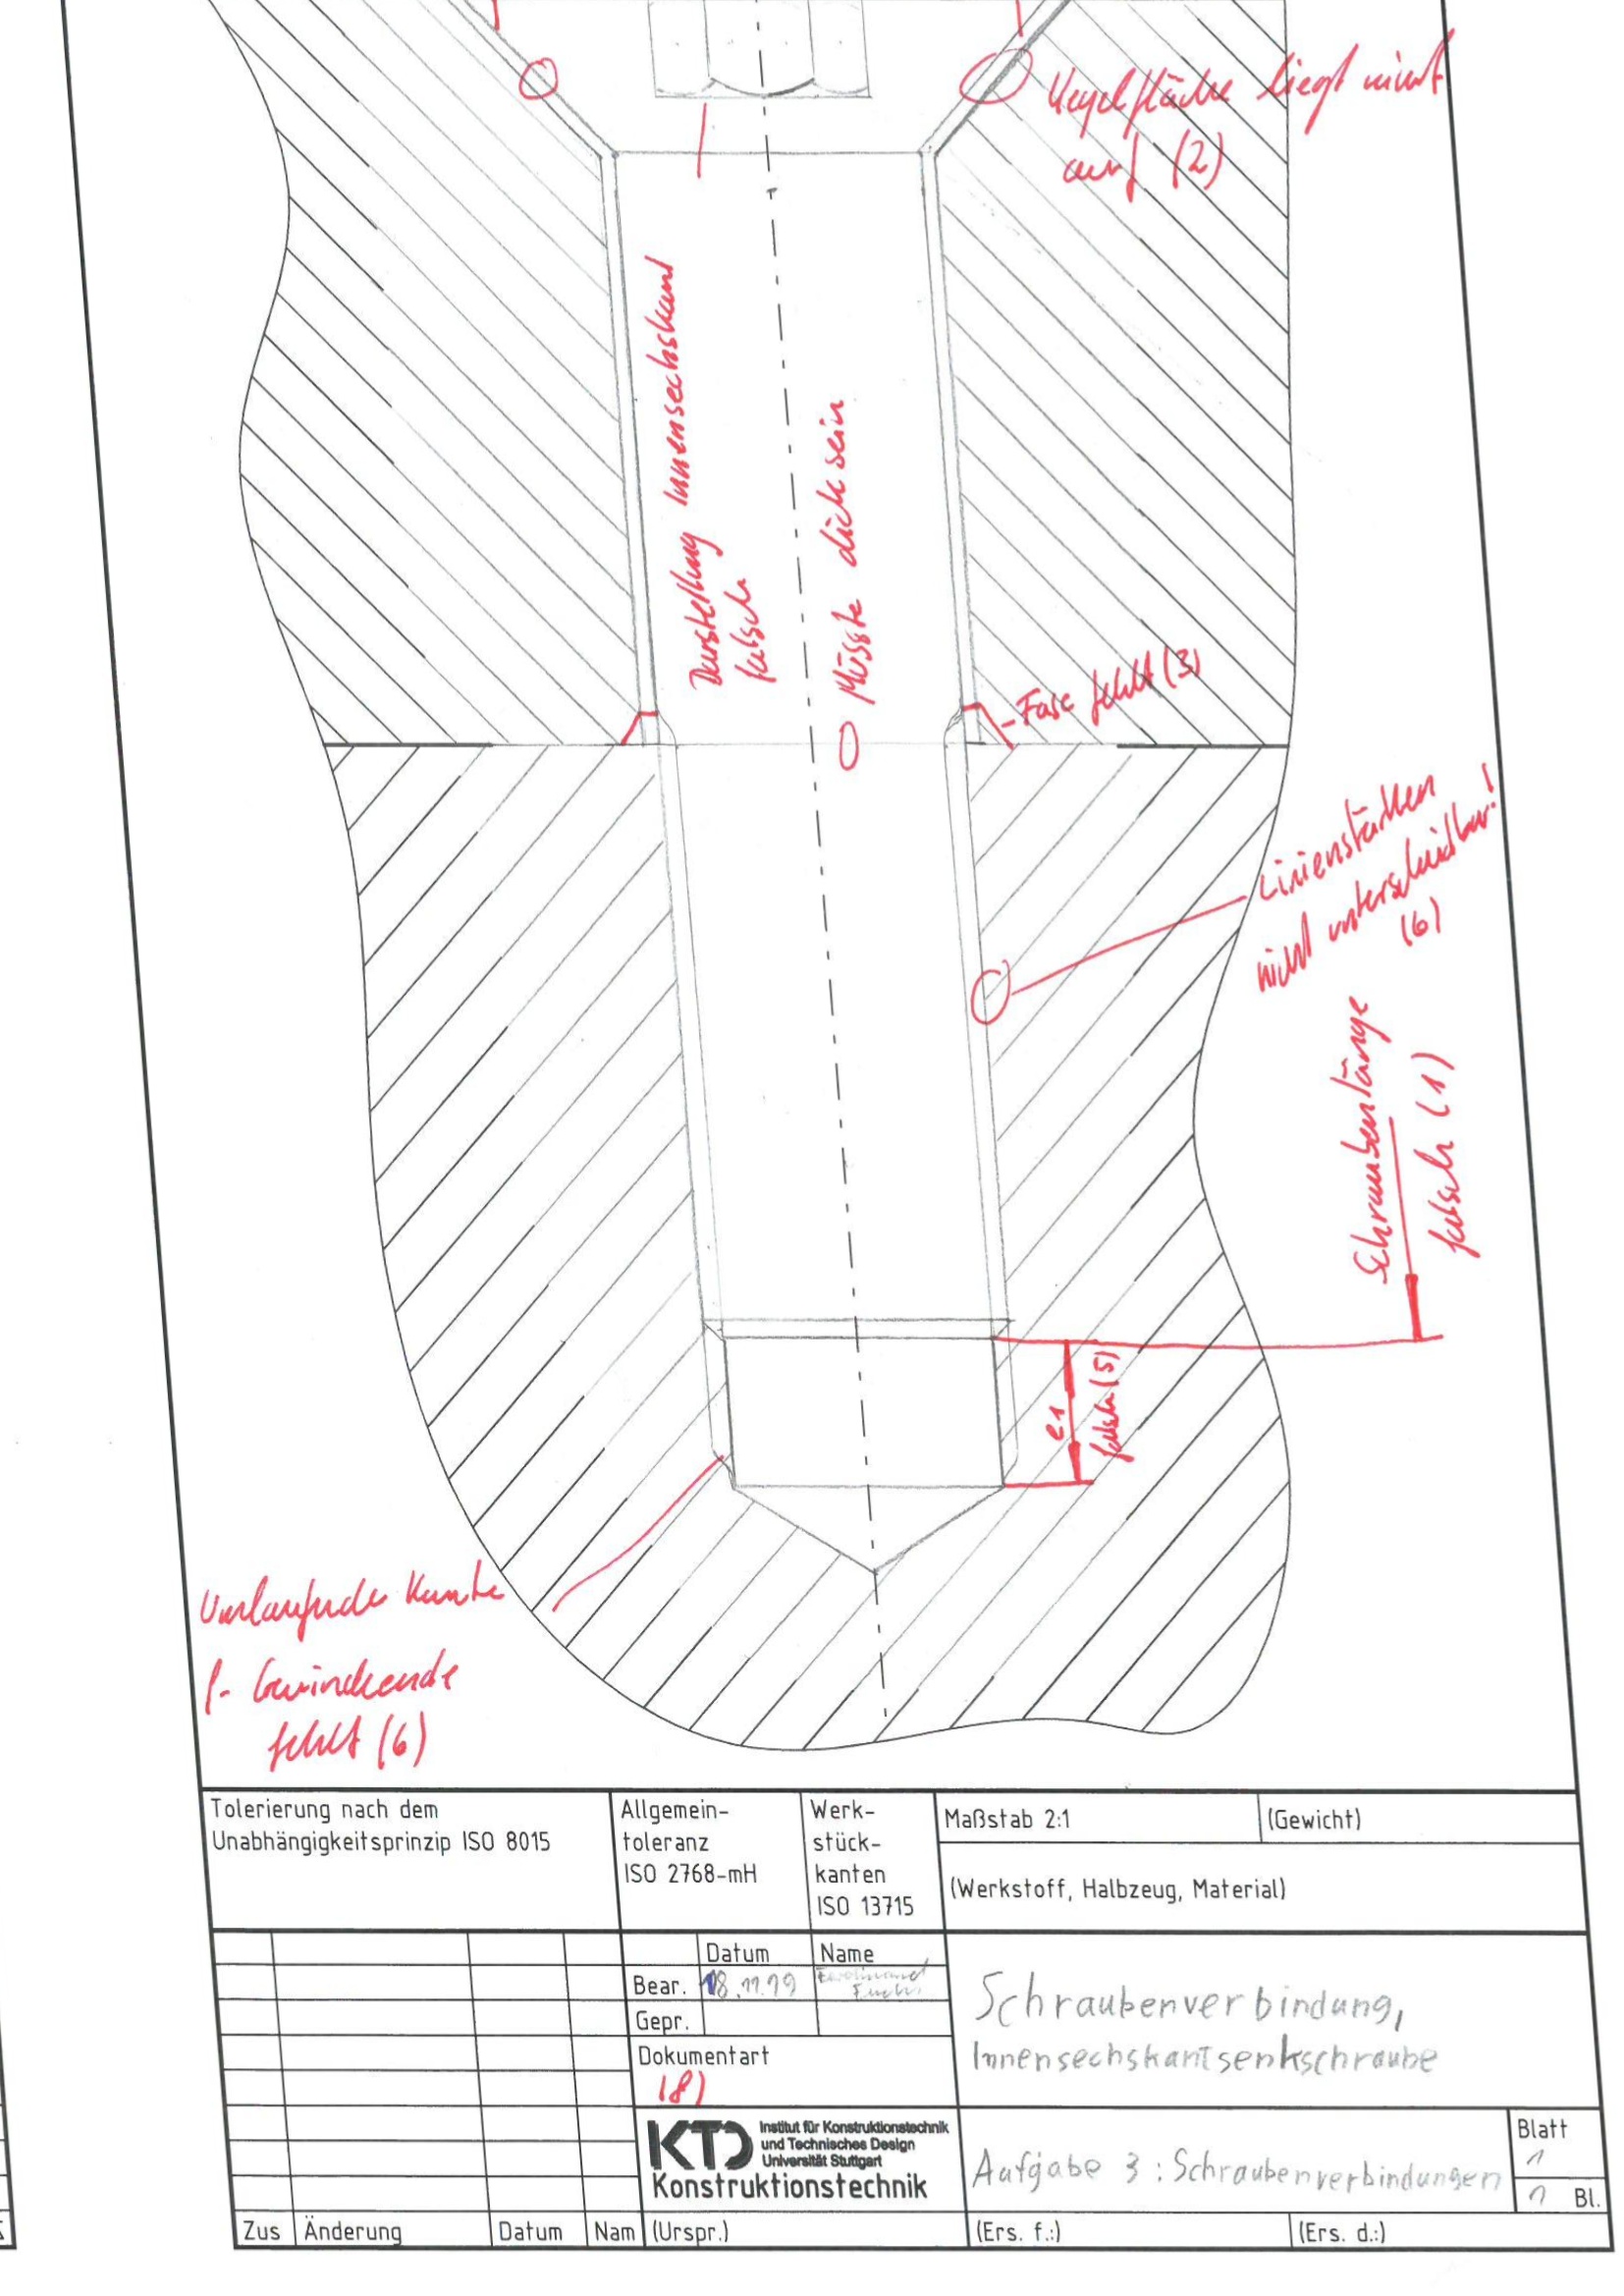 Kegelfläche liegt nicht
auf (2)
Darstellung Innensechskant
falsch
Müsste dick sein
- Fase fehlt (3)
Linienstärken
nicht unterscheidbar!
(6)
Schraubenlänge
falsch (1)
e1
falsch (5)
Umlaufende Kante
f. Gewindeende
fehlt (6)
Tolerierung nach dem
Unabhängigkeitsprinzip ISO 8015
Allgemein-
toleranz
ISO 2768-mH
Werk-
stück-
kanten
ISO 13715
Maßstab 2:1
(Gewicht)
(Werkstoff, Halbzeug, Material)
Datum
Name
Bear.
18.11.19
Gepr.
Dokumentart
(8)
Schraubenverbindung,
Innensechskantsenkschraube
KTD
Institut für Konstruktionstechnik
und Technisches Design
Universität Stuttgart
Konstruktionstechnik
Aufgabe 3: Schraubenverbindungen
Blatt
1
1 Bl.
Zus
Änderung
Datum
Nam
(Urspr.)
(Ers. f.:)
(Ers. d.:)